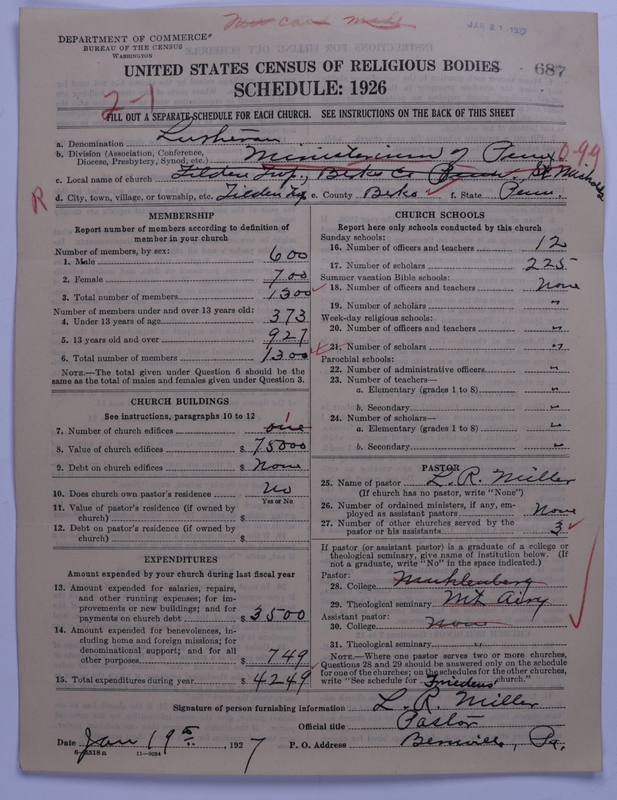 New card made
JAN 21 1927
DEPARTMENT OF COMMERCE
BUREAU OF THE CENSUS
WASHINGTON
UNITED STATES CENSUS OF RELIGIOUS BODIES
687
SCHEDULE: 1926
2-1
FILL OUT A SEPARATE SCHEDULE FOR EACH CHURCH. SEE INSTRUCTIONS ON THE BACK OF THIS SHEET
a. Denomination Lutheran
b. Division (Association, Conference, Diocese, Presbytery, Synod, etc.) Ministerium of Penna 0-99
c. Local name of church Tilden Twp., Berks Co Penn. St Michaels
R
d. City, town, village, or township, etc. Tilden Twp e. County Berks f. State Penn.
MEMBERSHIP
Report number of members according to definition of
member in your church
Number of members, by sex:
1. Male 600
2. Female 700
3. Total number of members 1300
Number of members under and over 13 years old:
4. Under 13 years of age 373
5. 13 years old and over 927
6. Total number of members 1300
NOTE.—The total given under Question 6 should be
same as the total of males and females given under Question 3.
CHURCH BUILDINGS
See instructions, paragraphs 10 to 12
7. Number of church edifices one 1
8. Value of church edifices $ 75000
9. Debt on church edifices $ None
10. Does church own pastor's residence No
Yes or No
11. Value of pastor's residence (if owned by
church) $
12. Debt on pastor's residence (if owned by
church) $
EXPENDITURES
Amount expended by your church during last fiscal year
13. Amount expended for salaries, repairs,
and other running expenses; for im-
provements or new buildings; and for
payments on church debt $ 3500
14. Amount expended for benevolences, in-
cluding home and foreign missions; for
denominational support; and for all
other purposes $ 749
15. Total expenditures during year $ 4249
CHURCH SCHOOLS
Report here only schools conducted by this church
Sunday schools:
16. Number of officers and teachers 12
17. Number of scholars 225
Summer vacation Bible schools:
18. Number of officers and teachers None
19. Number of scholars "
Week-day religious schools:
20. Number of officers and teachers "
21. Number of scholars "
Parochial schools:
22. Number of administrative officers "
23. Number of teachers—
a. Elementary (grades 1 to 8) "
b. Secondary "
24. Number of scholars—
a. Elementary (grades 1 to 8) "
b. Secondary "
PASTOR
25. Name of pastor L. R. Miller
(If church has no pastor, write "None")
26. Number of ordained ministers, if any, em-
ployed as assistant pastors None
27. Number of other churches served by the
pastor or his assistants 3
If pastor (or assistant pastor) is a graduate of a college or
theological seminary, give name of institution below. (If
not a graduate, write "No" in the space indicated.)
Pastor:
28. College Muhlenberg
29. Theological seminary Mt Airy
Assistant pastor:
30. College None
31. Theological seminary "
NOTE.—Where one pastor serves two or more churches,
Questions 28 and 29 should be answered only on the schedule
for one of the churches; on the schedules for the other churches,
write "See schedule for Friedens church."
Signature of person furnishing information L. R. Miller
Official title Pastor
Date Jan 19th, 1927 P. O. Address Bernville, Pa.
8-5518a 11-9034